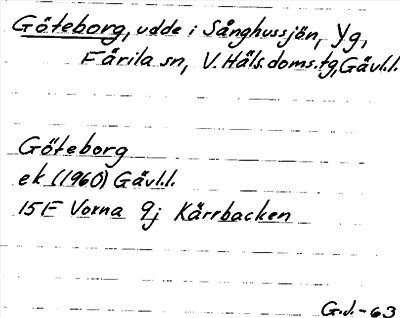 Göteborg, udde i Sånghussjön, Yg,
Färila sn, V. Häls. doms. tg, Gävl.l.
Göteborg
ek (1960) Gävl.l.
15F Vorna 9j Kärrbacken
G.J. -63